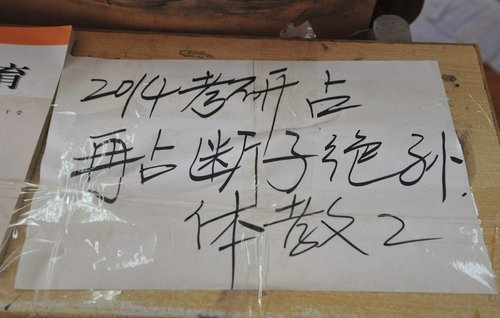 育
2014考研占
再占断子绝孙.
体散2